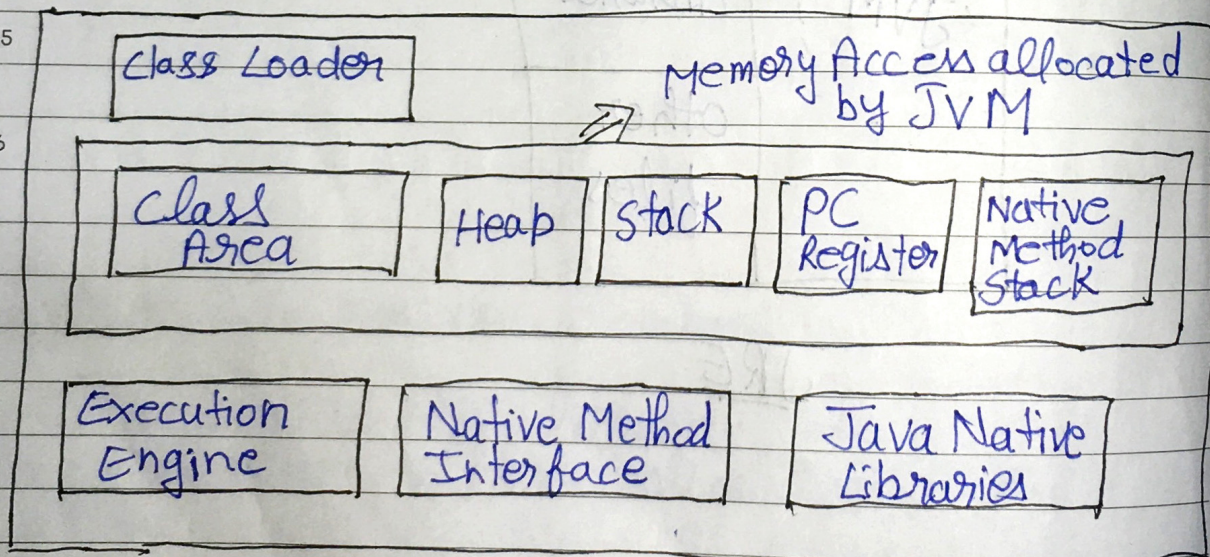 5
Class Loader
Memory Access allocated
by JVM
Class
Area
Heap
Stack
PC
Register
Native
Method
Stack
Execution
Engine
Native Method
Interface
Java Native
Libraries